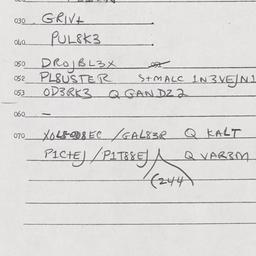 030 GRIV+
040 PUL8K3
050 DROJBL3X
052 PL8USTER S+MALC 1N3VEJN1
053 OD3RK3 Q GANDZ2
060 –
070 /GAL83R Q KALT
P1C+EJ /P1T88EJ Q VAR3M
(244